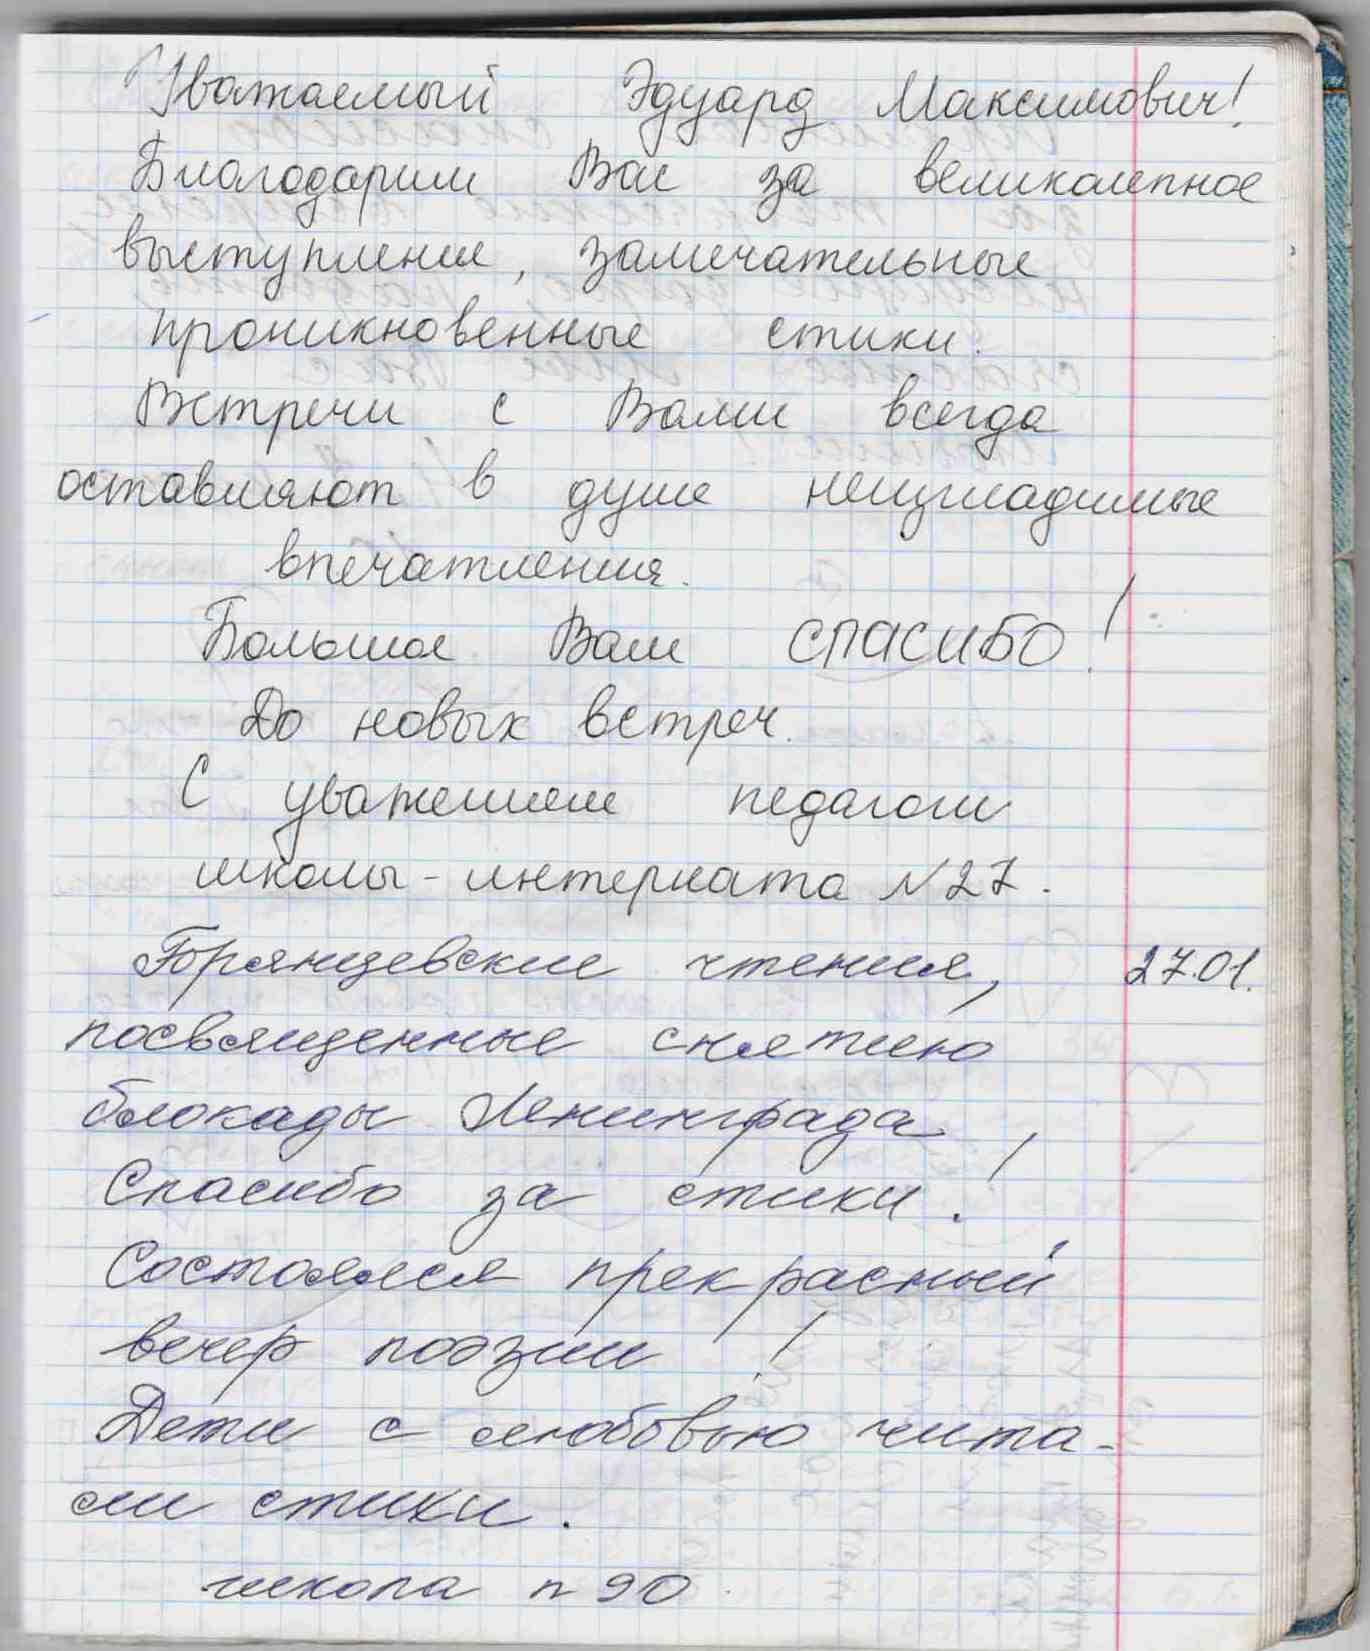 Уважаемый Эдуард Максимович!
Благодарим Вас за великолепное
выступление, замечательные
проникновенные стихи.
Встречи с Вами всегда
оставляют в душе неизгладимые
впечатления.
Большое Вам СПАСИБО!
До новых встреч.
С уважением педагоги
школы-интерната №27.
Горянцевские чтения, 27.01.
посвященные снятию
блокады Ленинграда
Спасибо за стихи!
Состоялся прекрасный
вечер поэзии!
Дети с любовью чита-
ли стихи.
школа n 90